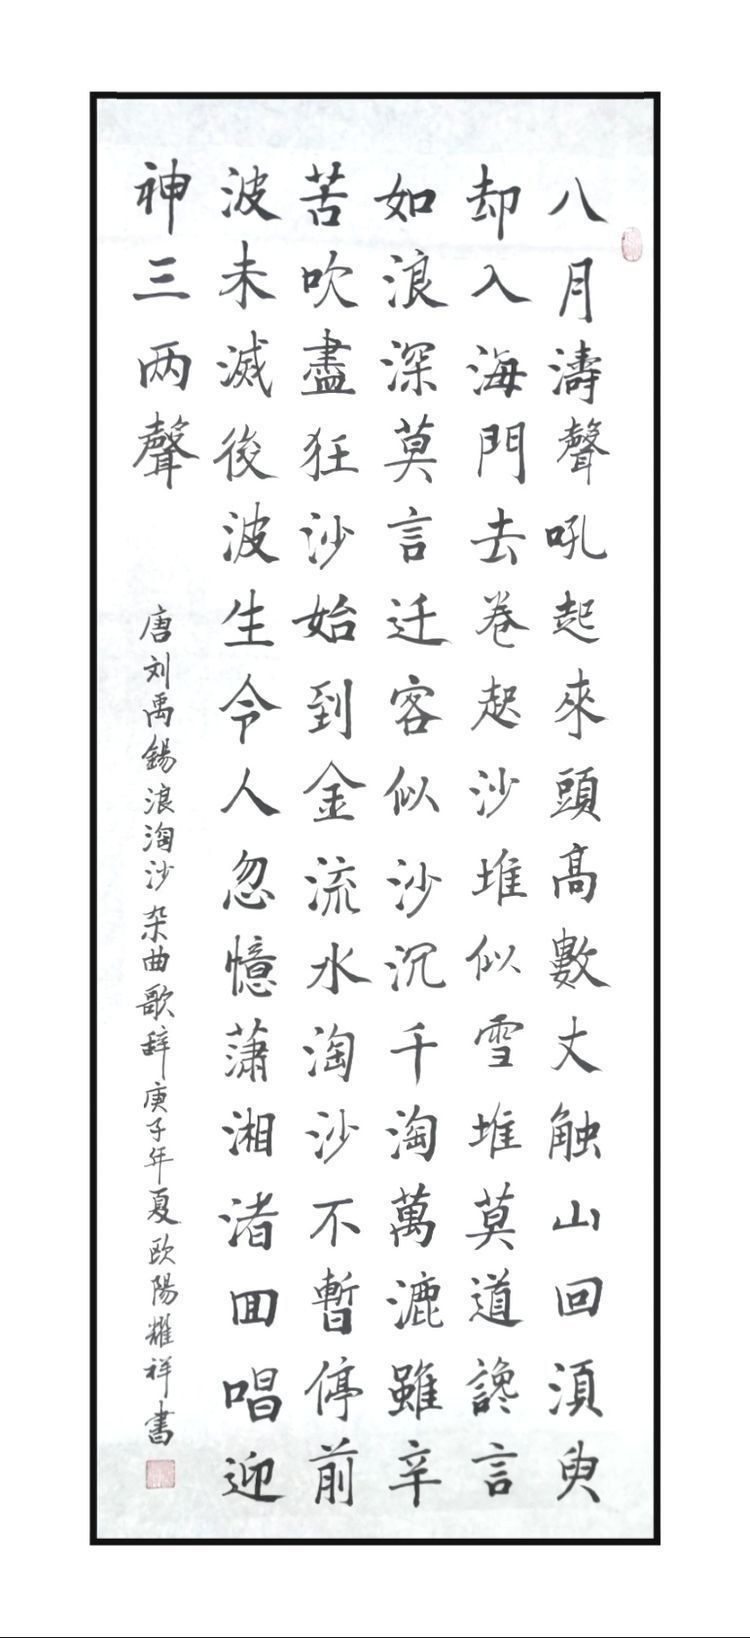 八月濤聲吼起來頭高數丈触山回湏臾
却入海門去卷起沙堆似雪堆莫道讒言
如浪深莫言迁客似沙沉千淘萬漉雖辛
苦吹盡狂沙始到金流水淘沙不暫停前
波未滅後波生令人忽憶瀟湘渚囬唱迎
神三两聲
唐刘禹錫浪淘沙杂曲歌辞庚子年夏欧陽耀祥書